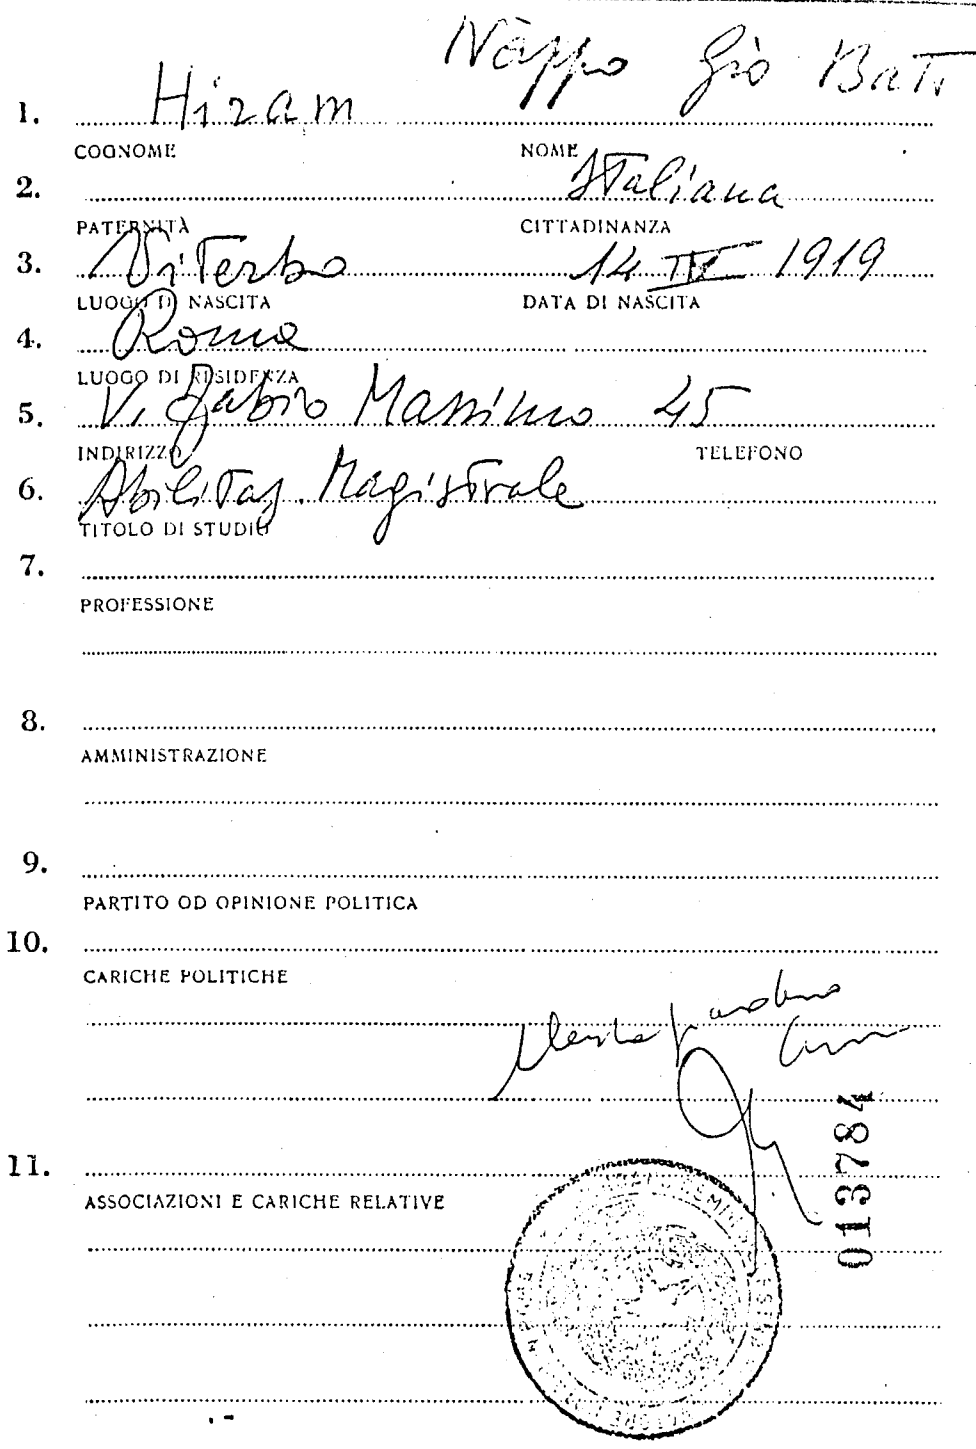 Nappo Giò Batt.
1. Hiram
COGNOME NOME
2. Italiana
PATERNITÀ CITTADINANZA
3. Viterbo 14 IV 1919
LUOGO DI NASCITA DATA DI NASCITA
4. Roma
LUOGO DI RESIDENZA
5. V. Fabio Massimo 45
INDIRIZZO TELEFONO
6. Abilitaz. Magistrale
TITOLO DI STUDIO
7.
PROFESSIONE
8.
AMMINISTRAZIONE
9.
PARTITO OD OPINIONE POLITICA
10.
CARICHE POLITICHE
013784
11.
ASSOCIAZIONI E CARICHE RELATIVE